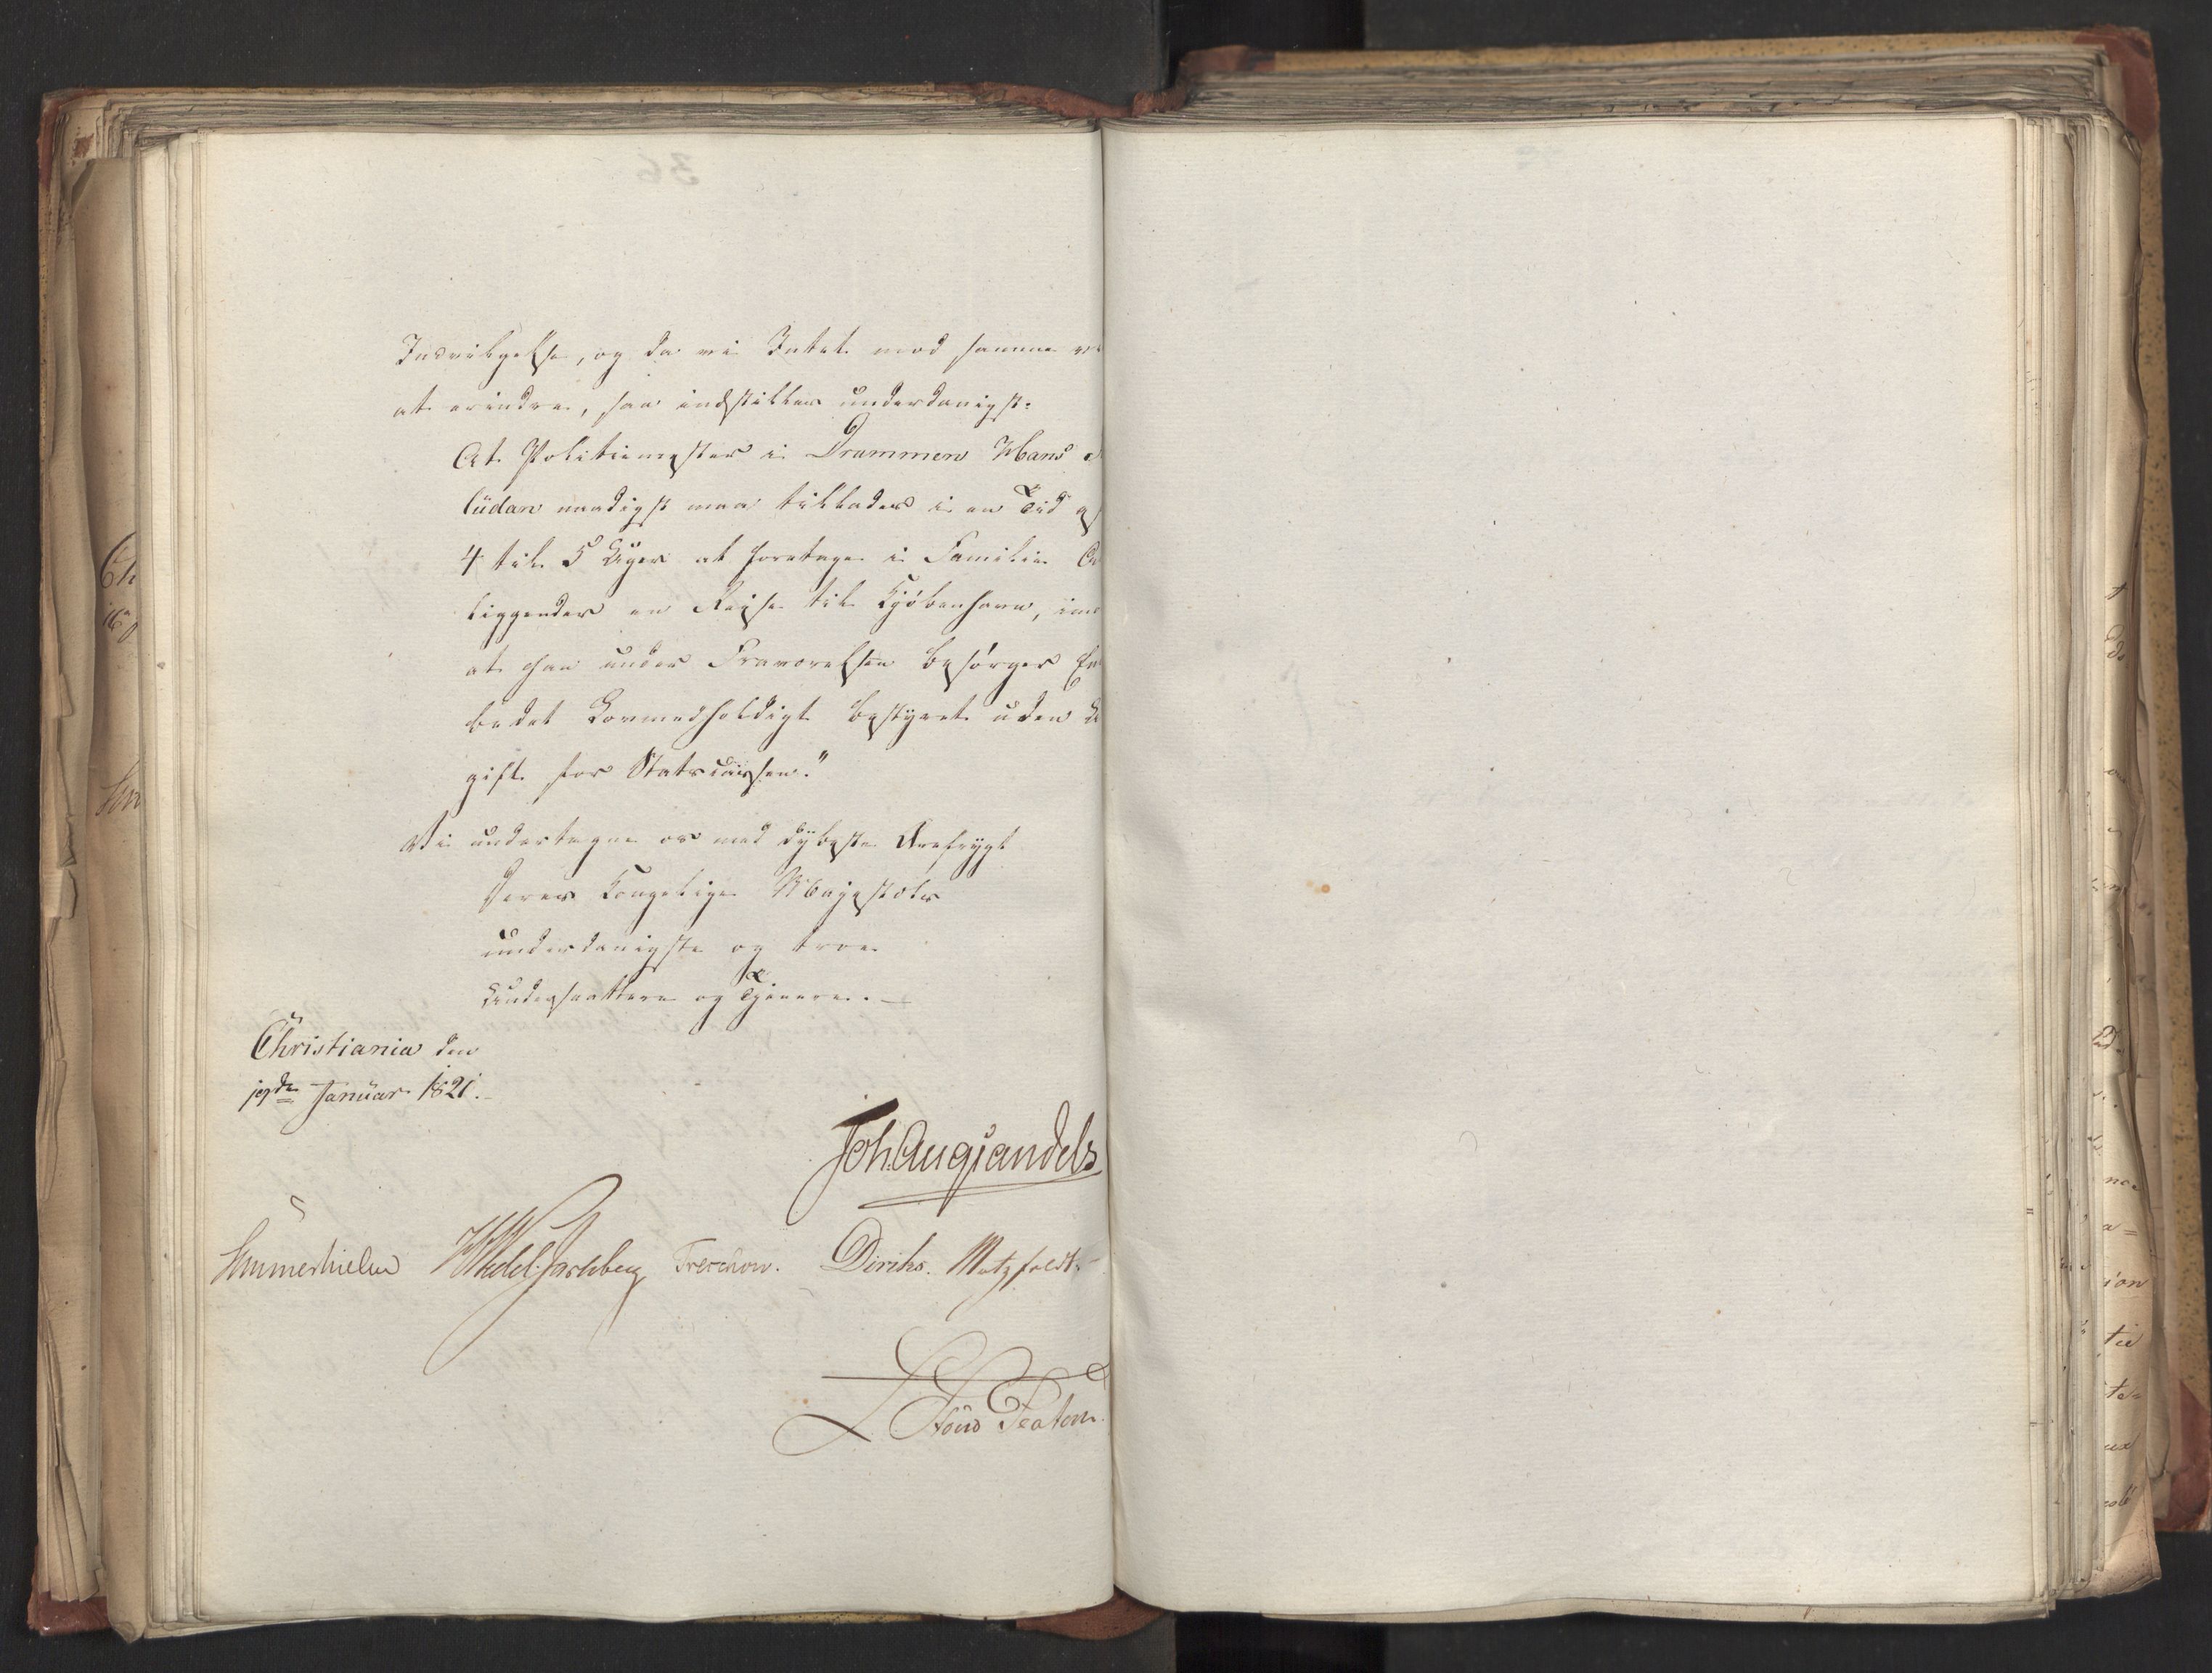 Indvilgelse, og da vi Intet mod samme
at erindre, saa indstilles underdanigst:
At Politiemester i Drammen Hans
lüdan naadigst maa tillades i en Tid af
4 til 5 Uger at foretage i Familie
liggender en Reise til Kjöbenhavn,
at han under Fraværelsen besørger
bedet forsvarligt bestyret uden
gift for Statscassen."
Vi undertegne os med dybeste Ærefrygt
Deres Kongelige Majestæts
underdanigste og troe
Undersaatter og Tjenere.
Christiania den
19de Januar 1821.
Joh. Aug. Sandels
Sommerhielm Wedel Jarlsberg Treschow. Diriks. Motzfeldt